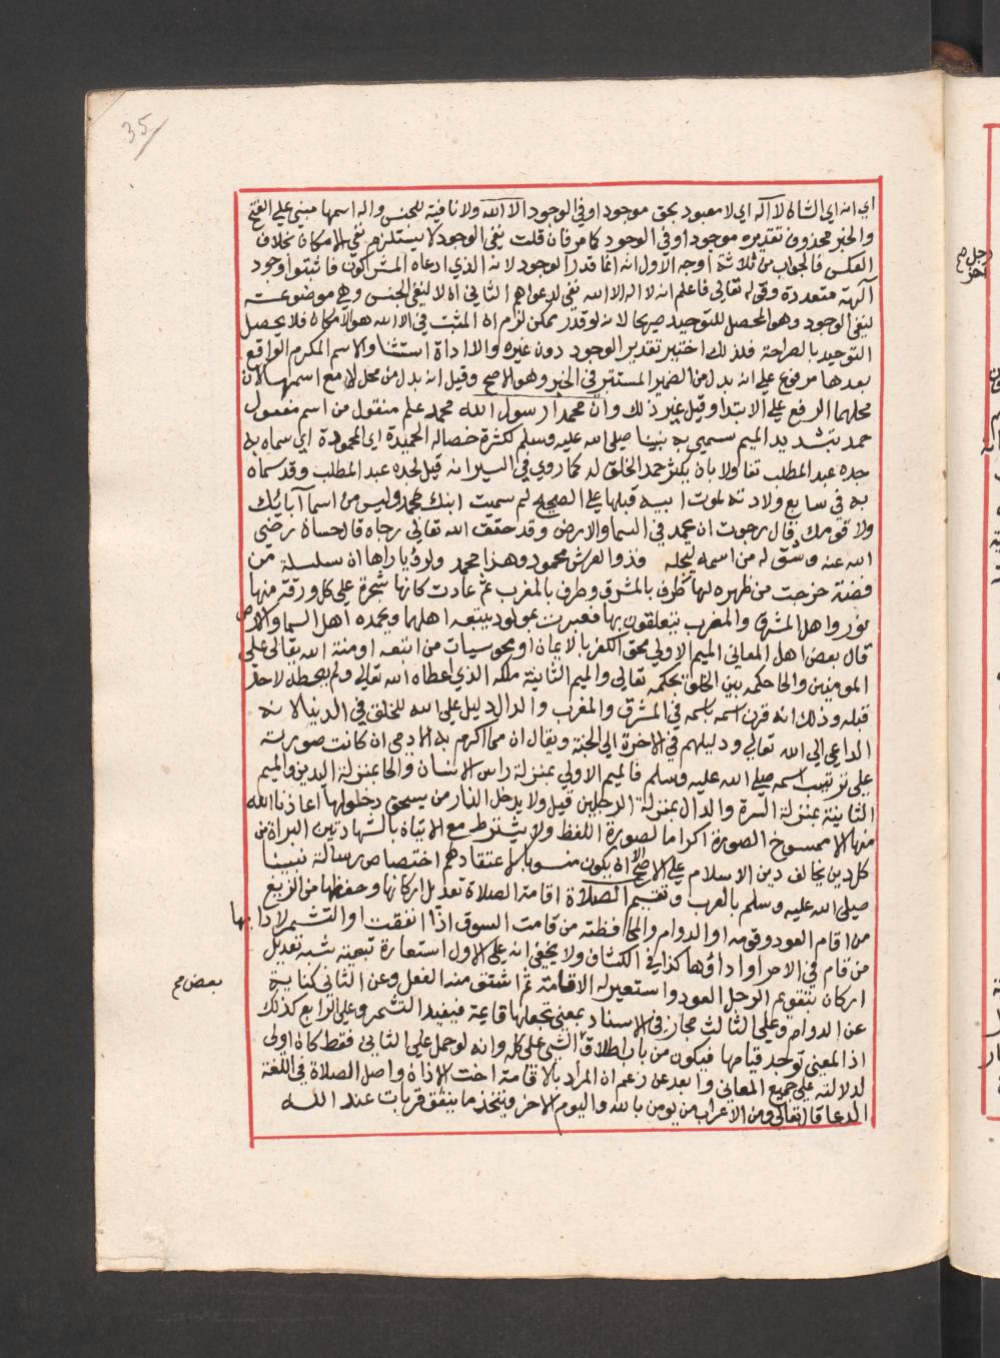 35
اي انه اي الشان لا اله اي لا معبود بحق موجود او في الوجود الا الله ولا نافية للجنس واله اسمها مبني علي الفتح
والخبر محذوف تقديره موجود او في الوجود كما مر فان قلت نفي الوجود لا يستلزم نفي الامكان بخلاف
العكس فالجواب من ثلاثة اوجه الاول انه انما قدر الوجود لانه الذي ادعاه المشركون فاثبتوا وجود
آلهة متعددة وقوله تعالي فاعلم انه لا اله الا الله نفي لدعواهم الثاني ان لا لنفي الجنس وهي موضوعة
لنفي الوجود وهو المحصل للتوحيد صريحا لانه لو قدر ممكن لزم ان المثبت في الا الله هو الامكان فلا يحصل
التوحيد بالصراحة فلذلك اختير تقدير الوجود دون غيره والا اداة استثنا والاسم المكرم الواقع
بعدها مرفوع علي انه بدل من الضمير المستتر في الخبر وهو الاصح وقيل انه بدل من محل لا مع اسمها لان
محلهما الرفع علي الابتدا وقيل غير ذلك وان محمدا رسول الله محمد علم منقول من اسم مفعول
حمد بتشديد الميم سمي به نبينا صلي الله عليه وسلم لكثرة خصاله الحميدة اي المحمودة اي سماه به
جده عبد المطلب تفاولا بان يكثر حمد الخلق له كما روي في السير انه قيل لجده عبد المطلب وقد سماه
به في سابع ولادته لموت ابيه قبلها علي الصحيح لم سميت ابنك محمد وليس من اسما آبائك
ولا قومك قال رجوت ان يحمد في السما والارض وقد حقق الله تعالي رجاه قال حسان رضي
الله عنه وشق له من اسمه ليجله فذو العرش محمود وهذا محمد ولرؤيا راها ان سلسلة من
فضة خرجت من ظهره لها طرف بالمشرق وطرف بالمغرب ثم عادت كانها شجرة علي كل ورقة منها
نور واهل المشرق والمغرب يتعلقون بها فعبرت بمولود يتبعه اهلهما ويحمده اهل السما والارض
قال بعض اهل المعاني الميم الاولي محق الكفر بالايمان او محو سيات من اتبعه او منة الله تعالي علي
المومنين والحا حكمه بين الخلق بحكمه تعالي والميم الثانية ملكه الذي اعطاه الله تعالي ولم يعطه لاحد
قبله وذلك انه قرن اسمه باسمه في المشرق والمغرب والدال دليل علي الله للخلق في الدنيا لانه
الداعي الي الله تعالي ودليلهم في الاخرة الي الجنة ويقال ان مما اكرم به الادمي ان كانت صورته
علي ترتيب اسمه صلي الله عليه وسلم فالميم الاولي بمنزلة راس الانسان والحا بمنزلة اليدين والميم
الثانية بمنزلة السرة والدال بمنزلة الرجلين قيل ولا يدخل النار من يستحق دخولها اعاذنا الله
منها الا ممسوخ الصورة اكراما لصورة اللفظ ولا يشترط مع الاتيان بالشهادتين البراة من
كل دين يخالف دين الاسلام علي الاصح الا ان يكون منسوبا لاعتقادهم اختصاص رسالة نبينا
صلي الله عليه وسلم بالعرب وتقيم الصلاة اقامة الصلاة تعديل اركانها وحفظها من الزيغ
من اقام العود وقومه او الدوام والمحافظة من قامت السوق اذا انفقت او التشمر لادايها
من قام في الامر او اداؤها كذا في الكشاف ولا يخفي انه علي الاول استعارة تبعية شبه تعديل
اركان بتقويم الرجل العود واستعير له الاقامة ثم اشتق منه الفعل وعن الثاني كناية
عن الدوام وعلي الثالث مجاز في الاسناد بمعني تجعلها قايمة فيفيد التشمر وعلي الرابع كذلك
اذ المعني توجد قيامها فيكون من باب اطلاق الشي علي كله وانه لو حمل علي الثاني فقط كان اولي
لدلالته علي جميع المعاني وابعد عن زعم ان المراد بالاقامة اخت الاذان واصل الصلاة في اللغة
الدعا قال تعالي ومن الاعراب من يومن بالله واليوم الاخر ويتخذ ما ينفق قربات عند الله
بعض صح
رجل صح
اخر